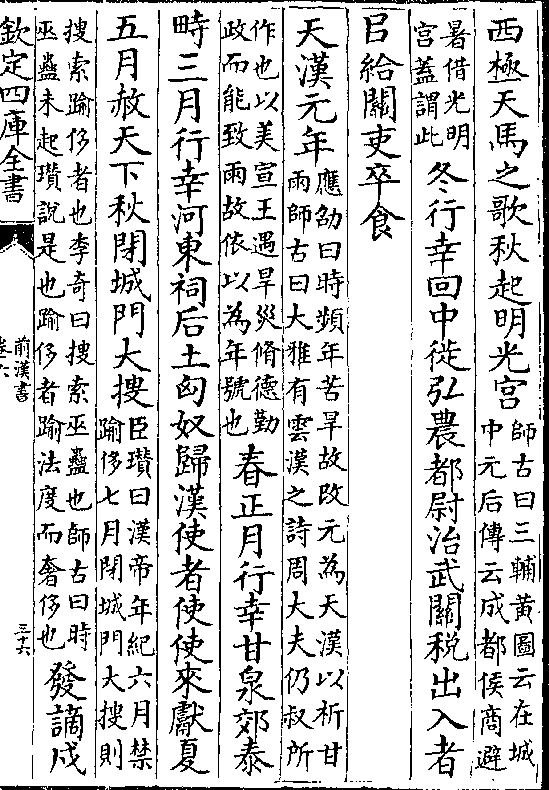 西極天馬之歌秋起明光宮師古曰三輔黃圖云在城
中元后傳云成都侯商避
暑借光明
宮蓋謂此冬行幸回中徙弘農都尉治武關稅出入者
㠯給關吏卒食
天漢元年應劭曰時頻年苦旱故改元為天漢以祈甘
雨師古曰大雅有雲漢之詩周大夫仍叔所
作也以美宣王遇旱災脩德勤
政而能致雨故依以為年號也春正月行幸甘泉郊泰
畤三月行幸河東祠后土匈奴歸漢使者使使來獻夏
五月赦天下秋閉城門大搜臣瓚曰漢帝年紀六月禁
踰侈七月閉城門大搜則
搜索踰侈者也李奇曰搜索巫蠱也師古曰時
巫蠱未起瓚說是也踰侈者踰法度而奢侈也發謫戍
欽定四庫全書
前漢書
卷六
三十六